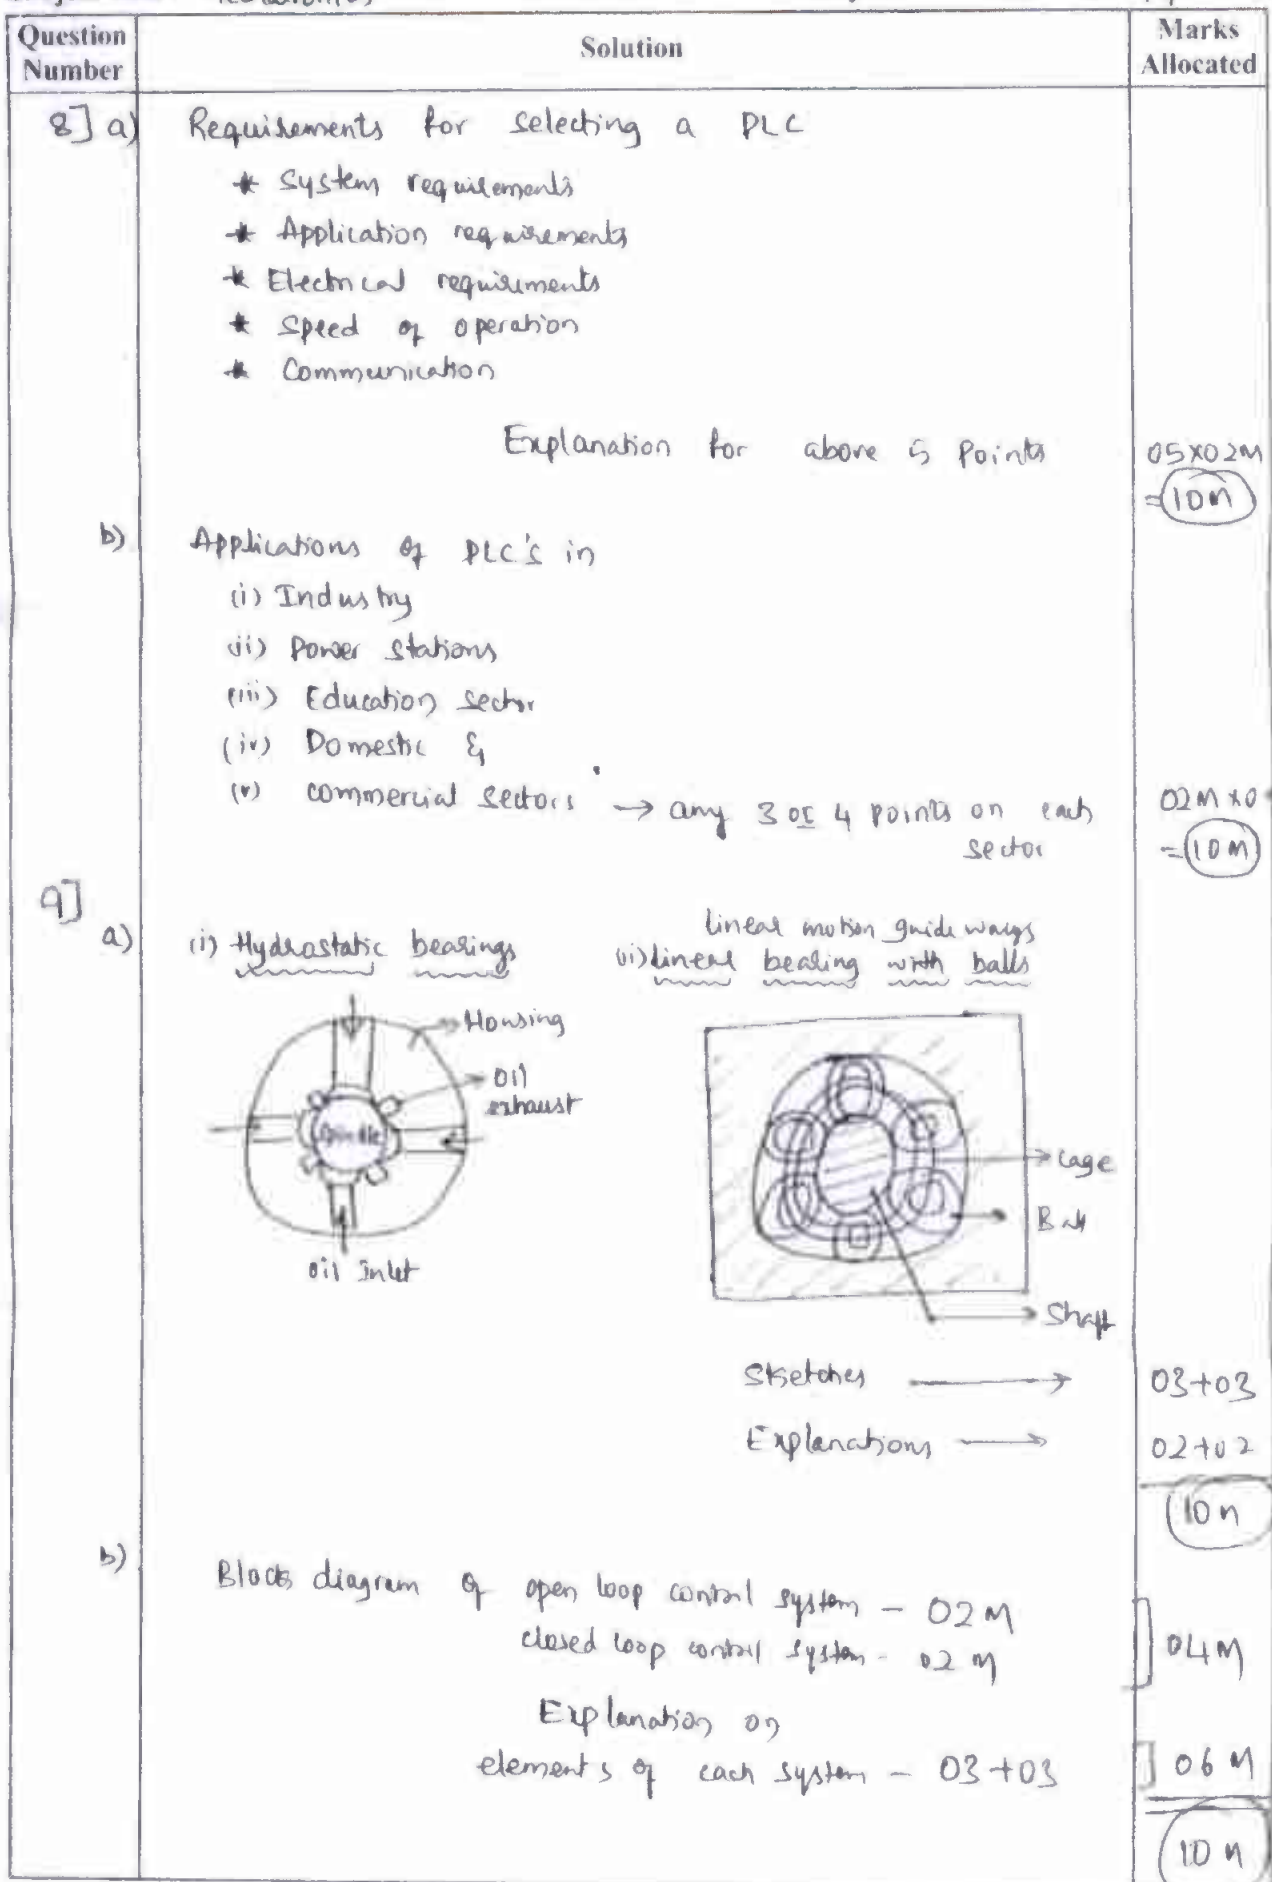 Question Number
Solution
Marks Allocated
8] a) Requirements for selecting a PLC
* System requirements
* Application requirements
* Electrical requirements
* Speed of operation
* Communication
Explanation for above 5 Points 05×02M
=10M
b) Applications of PLC's in
(i) Industry
(ii) Power stations
(iii) Education sector
(iv) Domestic &
(v) commercial sectors → any 3 or 4 points on each 02M×0
sector =10M
9]
a) (i) Hydrostatic bearings
linear motion guide ways
(ii) linear bearing with balls
Housing
oil
exhaust
Spindle
oil Inlet
cage
Ball
Shaft
Sketches → 03+03
Explanations → 02+02
10M
b)
Block diagram of open loop control system - 02M
closed loop control system - 02M
04M
Explanation on
elements of each system - 03+03 06M
10M